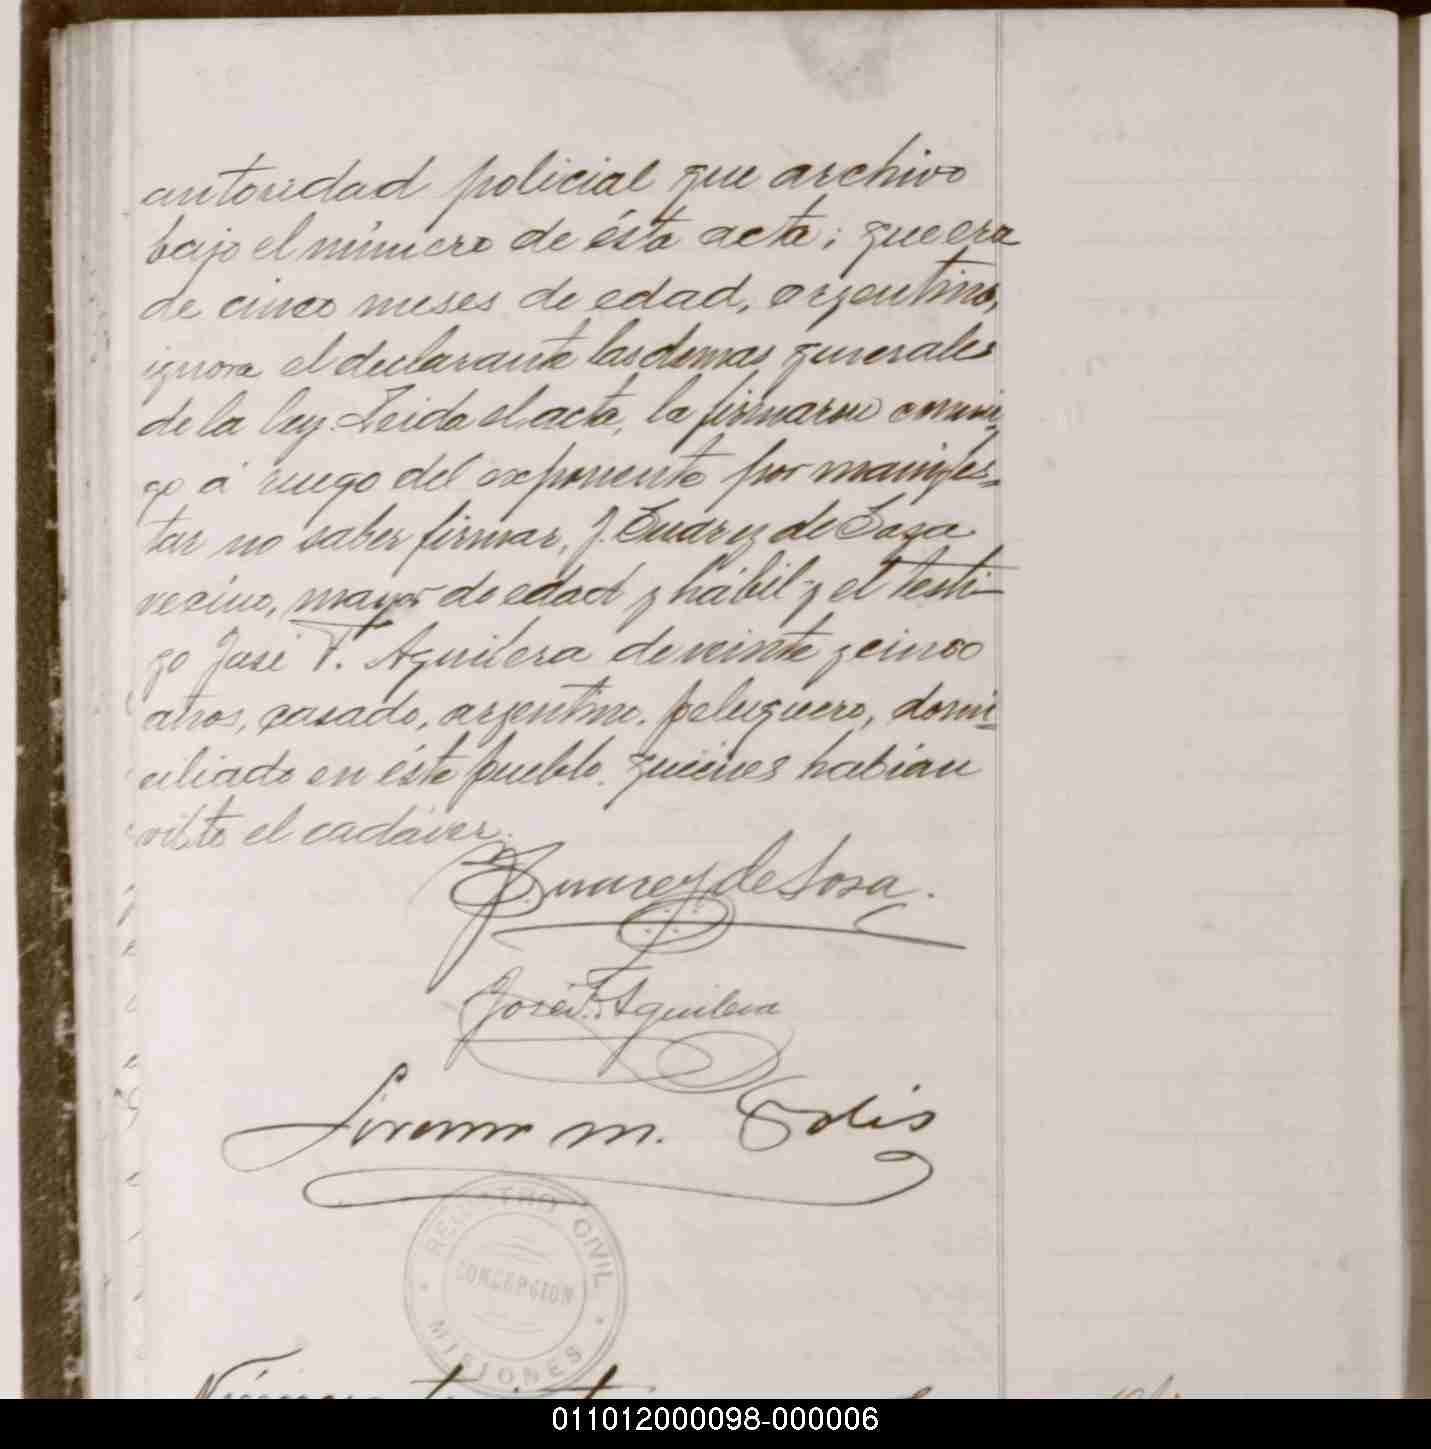 autoridad policial que archivo
bajo el número de ésta acta; que era
de cinco meses de edad, argentino,
ignora el declarante las demas generales
de la ley. Leida el acta, la firmaron conmi-
go á ruego del exponente por manifes-
tar no saber firmar, J. Suarez de Sosa
vecino, mayor de edad y hábil y el testi-
go José F. Aguilera de veinte y cinco
años, casado, argentino, peluquero, domi-
ciliado en éste pueblo. quienes habían
visto el cadáver.
J. Suarez de Sosa.
José F. Aguilera
M. Solis
REGISTRO CIVIL
CONCEPCION
MISIONES
Número treinta
011012000098-000006